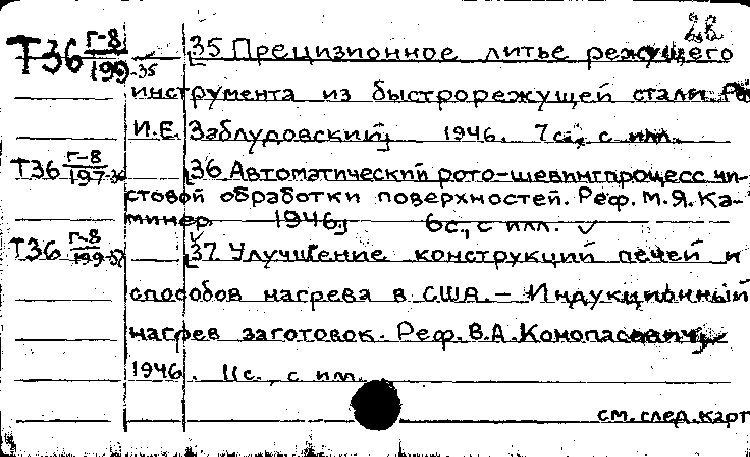 28
Т36 Г-8/199-35 [35 Прецизионное литье режущего
инструмента из быстрорежущей стали.
И.Е. Заблудовский, 1946. 7с., с илл.
Т36 Г-8/197-36 [36 Автоматический рото-шевингпроцесс чи-
стовой обработки поверхностей. Реф. М.Я. Ка-
минер 1946, 6с., с илл.
Т36 Г-8/199-37 [37 Улучшение конструкций печей и
способов нагрева в США. – Индукционный
нагрев заготовок. Реф. В.А. Конопасевич,
1946. 11с., с илл.
см. след. карт